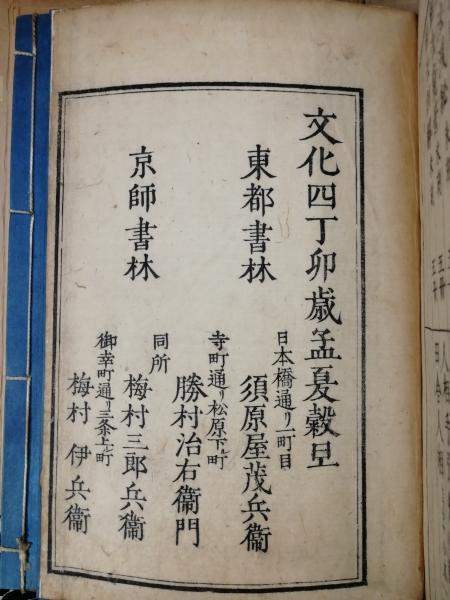 文化四丁卯歳孟夏穀旦
東都書林
日本橋通リ一町目
須原屋茂兵衞
寺町通リ松原下ル町
勝村治右衞門
京師書林
同所
梅村三郎兵衞
御幸町通リ三条上ル町
梅村伊兵衞